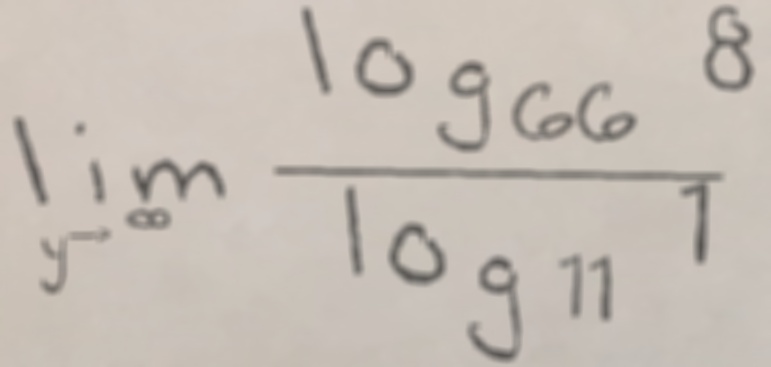 \lim_{y \to \infty} \frac{\log_{66} 8}{\log_{11} 1}